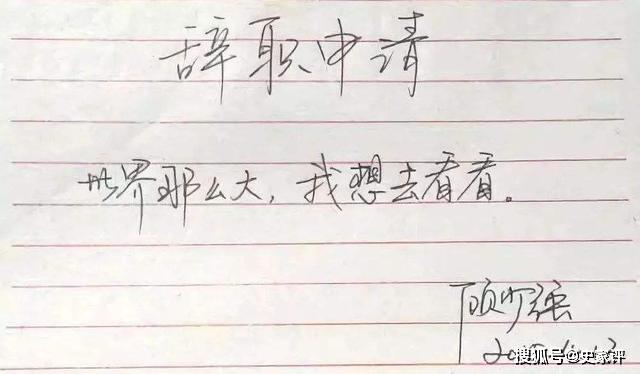 辞职申请
世界那么大,我想去看看。
顾少强
搜狐号@史家评